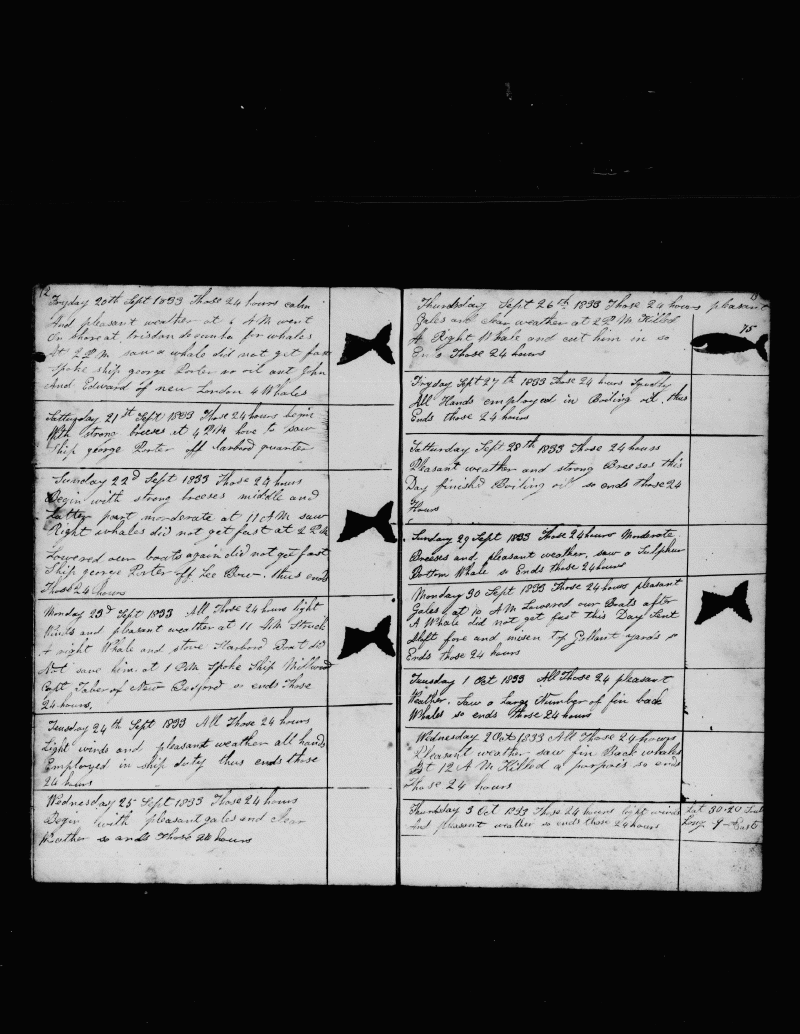 12
Fryday 20th Sept 1833 Those 24 hours calm
And pleasant weather at 6 A M went
In shore at tristan de cunha for whales
At 2 P.M. saw a whale did not get fast
Spoke ship george Porter no oil out John
And Edward of new London 4 Whales
Satturday 21st Sept 1833 Those 24 hours begins
With strong breeses at 4 P.M. hove to saw
Ship george Porter off larbord quarter
Sunday 22d Sept 1833 Those 24 hours
Begin with strong breeses middle and
Latter part morderate at 11 A M. saw
Right whales did not get fast at 2 P M
Lowered our boats again did not get fast
Ship george Porter off Lee Bow. thus ends
Those 24 hours
Monday 23d Sept 1833 All Those 24 hours light
Winds and pleasant weather at 11 A M. Struck
A right Whale and stove Starbord Boat did
Not save him. at 1 P M Spoke Ship
Capt Taber of New Bedford so ends Those
24 hours.
Teusday 24th Sept 1833 All Those 24 hours
Light winds and pleasant weather all hands
Employed in ship duty thus ends those
24 hours
Wednesday 25 Sept 1833 Those 24 hours
Begin with pleasant gales and clear
Weather so ends Those 24 hours
13
Thursday Sept 26th 1833 Those 24 hours pleasant
Gales and clear weather at 2 P.M. Killed
A Right Whale and cut him in so
Ends Those 24 hours
75
Fryday Sept 27th 1833 Those 24 hours Squaly
All Hands employed in Boiling oil. thus
Ends those 24 hours
Satturday Sept 28th 1833 Those 24 hours
Pleasant weather and strong Breeses this
Day finishd Boiling oil so ends those 24
Hours
Sunday 29 Sept 1833 Those 24 hours Moderate
Breeses and pleasant weather. saw a Sulphur
Bottom Whale so Ends those 24 hours
Monday 30 Sept 1833 Those 24 hours pleasant
Gales at 10 A M Lowered our Boats after
A Whale did not get fast this Day Sent
Aloft fore and misen Top Gallant yards so
Ends those 24 hours
Teusday 1 Oct 1833 All Those 24 pleasant
Weather. Saw a Large Number of fin back
Whales so ends Those 24 hours
Wednesday 2 Oct 1833 All Those 24 hours
Pleasant weather saw fin Back whales
At 12 A M Killed a porpois so ends
Those 24 hours
Thursday 3 Oct 1833 Those 24 hours light winds
And pleasant weather so ends those 24 hours
Lat 30-20 South
Long 9- East